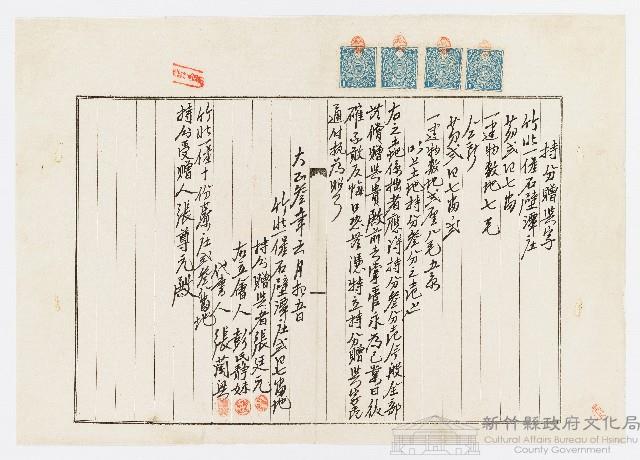 持分贈與字
竹北一堡石壁潭庄
第弍百七番
一建物敷地七毛
仝所
第弍百七番ノ弍
一建物敷地弍厘九毛五糸
以上土地持分叁分之壱
右之土地係拙者應得持分叁分壱今般全部
贈與貴殿前去掌管永為己業日後
確不敢反悔口恐無憑特立持分贈與字壱
通付執為照
大正叁年五月拾五日
竹北一堡石壁潭庄弍百七番地
持分贈與者張廷元
右立會人彭氏靜妹
代書人張蘭興
竹北一堡十份藔庄弍叁番地
持分受贈人張尊元殿
新竹縣政府文化局
Cultural Affairs Bureau of Hsinchu
County Government